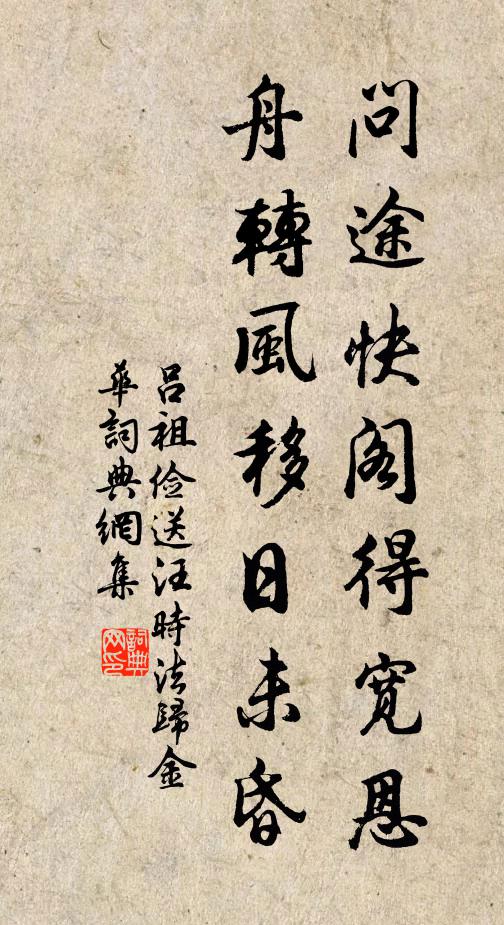 問途快阁得寬恩
舟轉風移日未昏
吕祖俭送汪時法歸金
華詞典網集
詞典
网印